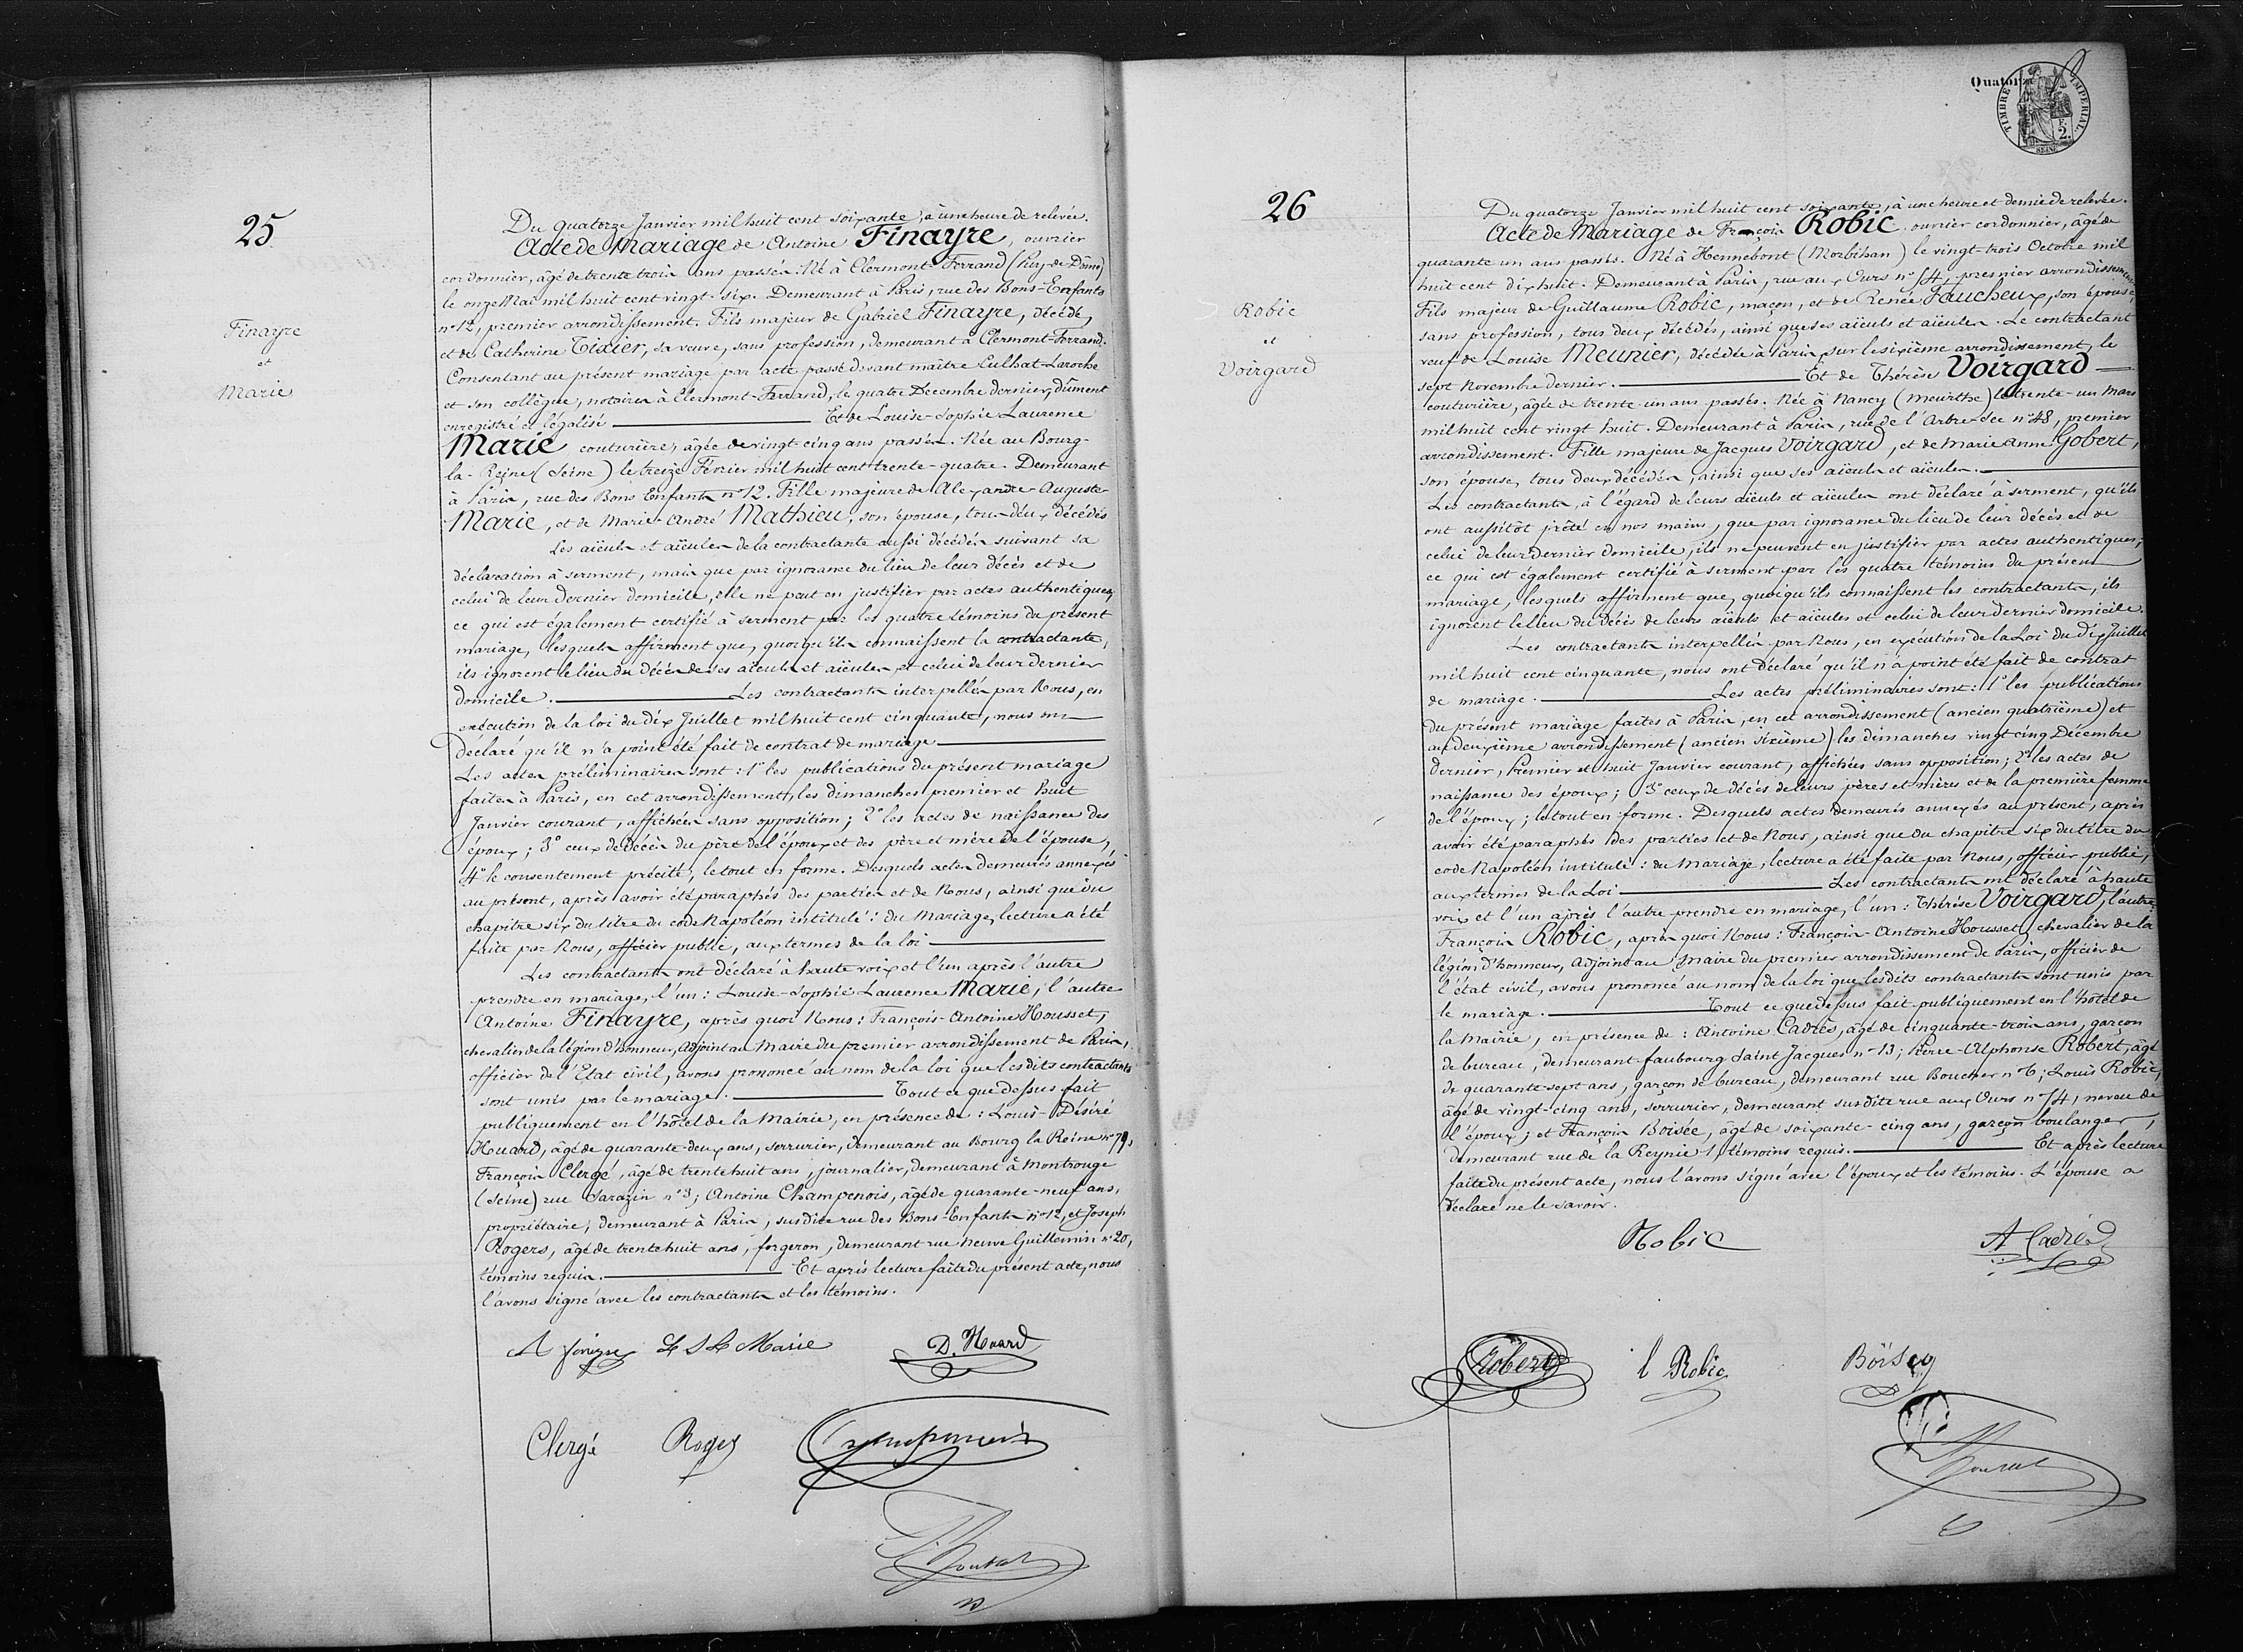 25
Finayre
et
Marie
Du quatorze Janvier mil huit cent soixante, à une heure de relevée.
Acte de Mariage de Antoine Finayre, ouvrier
cordonnier, âgé de trente trois ans passés. Né à Clermont-Ferrand (Puy-de-Dôme)
le onze Mai mil huit cent vingt-six. Demeurant à Paris, rue des Bons-Enfants
n° 12, premier arrondissement. Fils majeur de Gabriel Finayre, décédé,
et de Catherine Tixier, sa veuve, sans profession, demeurant à Clermont-Ferrand.
Consentant au présent mariage par acte passé devant maître Culhat-Laroche
et son collègue, notaires à Clermont-Ferrand, le quatre Décembre dernier, dûment
enregistré et légalisé — Et de Louise-Sophie Laurence
Marie couturière, âgée de vingt-cinq ans passés. Née au Bourg-
la-Reine (Seine) le treize Février mil huit cent trente-quatre. Demeurant
à Paris, rue des Bons Enfants n° 12. Fille majeure de Alexandre-Auguste-
Marie, et de Marie-André Mathieu, son épouse, tous deux décédés
Les aïeuls et aïeules de la contractante aussi décédés suivant sa
déclaration à serment, mais que par ignorance du lieu de leur décès et de
celui de leur dernier domicile, elle ne peut en justifier par actes authentiques,
ce qui est également certifié à serment par les quatre témoins du présent
mariage, lesquels affirment que, quoiqu'ils connaissent la contractante,
ils ignorent le lieu du décès de ses aïeuls et aïeules, et celui de leur dernier
domicile. — Les contractants interpellés par Nous, en
exécution de la loi du dix Juillet mil huit cent cinquante, nous ont
déclaré qu'il n'a point été fait de contrat de mariage —
Les actes préliminaires sont : 1° les publications du présent mariage
faites à Paris, en cet arrondissement, les dimanches premier et huit
Janvier courant, affichées sans opposition; 2° les actes de naissance des
époux; 3° ceux de décès du père de l'époux et des père et mère de l'épouse,
4° le consentement précité, le tout en forme. Desquels actes demeurés annexés
au présent, après avoir été paraphés des parties et de Nous, ainsi que du
chapitre six du titre du code Napoléon intitulé : du Mariage, lecture a été
faite par Nous, officier public, aux termes de la loi —
Les contractants ont déclaré à haute voix et l'un après l'autre
prendre en mariage, l'un : Louise-Sophie Laurence Marie, l'autre
Antoine Finayre, après quoi Nous : François-Antoine Housset,
chevalier de la légion d'honneur, Adjoint au Maire du premier arrondissement de Paris,
officier de l'Etat civil, avons prononcé au nom de la loi que lesdits contractants
sont unis par le mariage. — Tout ce que dessus fait
publiquement en l'hôtel de la Mairie, en présence de : Louis-Désiré
Huard, âgé de quarante-deux ans, serrurier, demeurant au Bourg la Reine n° 79,
François Clergé, âgé de trente huit ans, journalier, demeurant à Montrouge
(Seine) rue Sarazin n° 3; Antoine Champenois, âgé de quarante-neuf ans,
propriétaire, demeurant à Paris, susdite rue des Bons-Enfants n° 12, et Joseph
Rogers, âgé de trente huit ans, forgeron, demeurant rue Neuve Guillemin n° 20,
témoins requis. — Et après lecture faite du présent acte, nous
l'avons signé avec les contractants et les témoins.
A finayre L S L Marie D. Huard
Clergé Rogers Champenois
Housset
Quatorze
TIMBRE IMPERIAL
F.
2.
SEINE
26
Robic
et
Voirgard
Du quatorze Janvier mil huit cent soixante, à une heure et demie de relevée.
Acte de Mariage de François Robic, ouvrier cordonnier, âgé de
quarante un ans passés. Né à Hennebont (Morbihan) le vingt-trois Octobre mil
huit cent dix huit. Demeurant à Paris, rue aux Ours n° 54, premier arrondissement
Fils majeur de Guillaume Robic, maçon, et de Renée Faucheux, son épouse,
sans profession, tous deux décédés, ainsi que ses aïeuls et aïeules. Le contractant
veuf de Louise Meunier, décédée à Paris, sur le sixième arrondissement, le
sept Novembre dernier. — Et de Thérèse Voirgard —
couturière, âgée de trente-un ans passés. Née à Nancy (Meurthe) le trente-un Mars
mil huit cent vingt huit. Demeurant à Paris, rue de l'Arbre-Sec n° 48, premier
arrondissement. Fille majeure de Jacques Voirgard, et de Marie Anne Gobert,
son épouse, tous deux décédés, ainsi que ses aïeuls et aïeules. —
Les contractants, à l'égard de leurs aïeuls et aïeules ont déclaré à serment, qu'ils
ont aussitôt prêté en nos mains, que par ignorance du lieu de leur décès et de
celui de leur dernier domicile, ils ne peuvent en justifier par actes authentiques;
ce qui est également certifié à serment par les quatre témoins du présent
mariage, lesquels affirment que, quoiqu'ils connaissent les contractants, ils
ignorent le lieu du décès de leurs aïeuls et aïeules et celui de leur dernier domicile.
Les contractants interpellés par Nous, en exécution de la Loi du dix Juillet
mil huit cent cinquante, nous ont déclaré qu'il n'a point été fait de contrat
de mariage. — Les actes préliminaires sont : 1° les publications
du présent mariage faites à Paris, en cet arrondissement (ancien quatrième) et
au deuxième arrondissement (ancien sixième) les dimanches vingt cinq Décembre
dernier, Premier et huit Janvier courant, affichées sans opposition; 2° les actes de
naissance des époux; 3° ceux de décès de leurs pères et mères et de la première femme
de l'époux; le tout en forme. Desquels actes demeurés annexés au présent, après
avoir été paraphés des parties et de Nous, ainsi que du chapitre six du titre du
code Napoléon intitulé : du Mariage, lecture a été faite par Nous, officier public,
aux termes de la Loi — Les contractants ont déclaré à haute
voix et l'un après l'autre prendre en mariage, l'un : Thérèse Voirgard, l'autre :
François Robic, après quoi Nous : François-Antoine Housset, chevalier de la
légion d'honneur, Adjoint au Maire du premier arrondissement de Paris, officier de
l'état civil, avons prononcé au nom de la loi que lesdits contractants sont unis par
le mariage. — Tout ce que dessus fait publiquement en l'hôtel de
la Mairie, en présence de : Antoine Cadiès, âgé de cinquante-trois ans, garçon
de bureau, demeurant faubourg Saint Jacques n° 13; Pierre-Alphonse Robert, âgé
de quarante-sept ans, garçon de bureau, demeurant rue Boucher n° 6; Louis Robic,
âgé de vingt-cinq ans, serrurier, demeurant susdite rue aux Ours n° 54, neveu de
l'époux; et François Boisée, âgé de soixante-cinq ans, garçon boulanger,
demeurant rue de la Reynie 1, témoins requis. — Et après lecture
faite du présent acte, nous l'avons signé avec l'époux et les témoins. L'épouse a
déclaré ne le savoir.
Robic A Cadiès
Robert l Robic
Housset